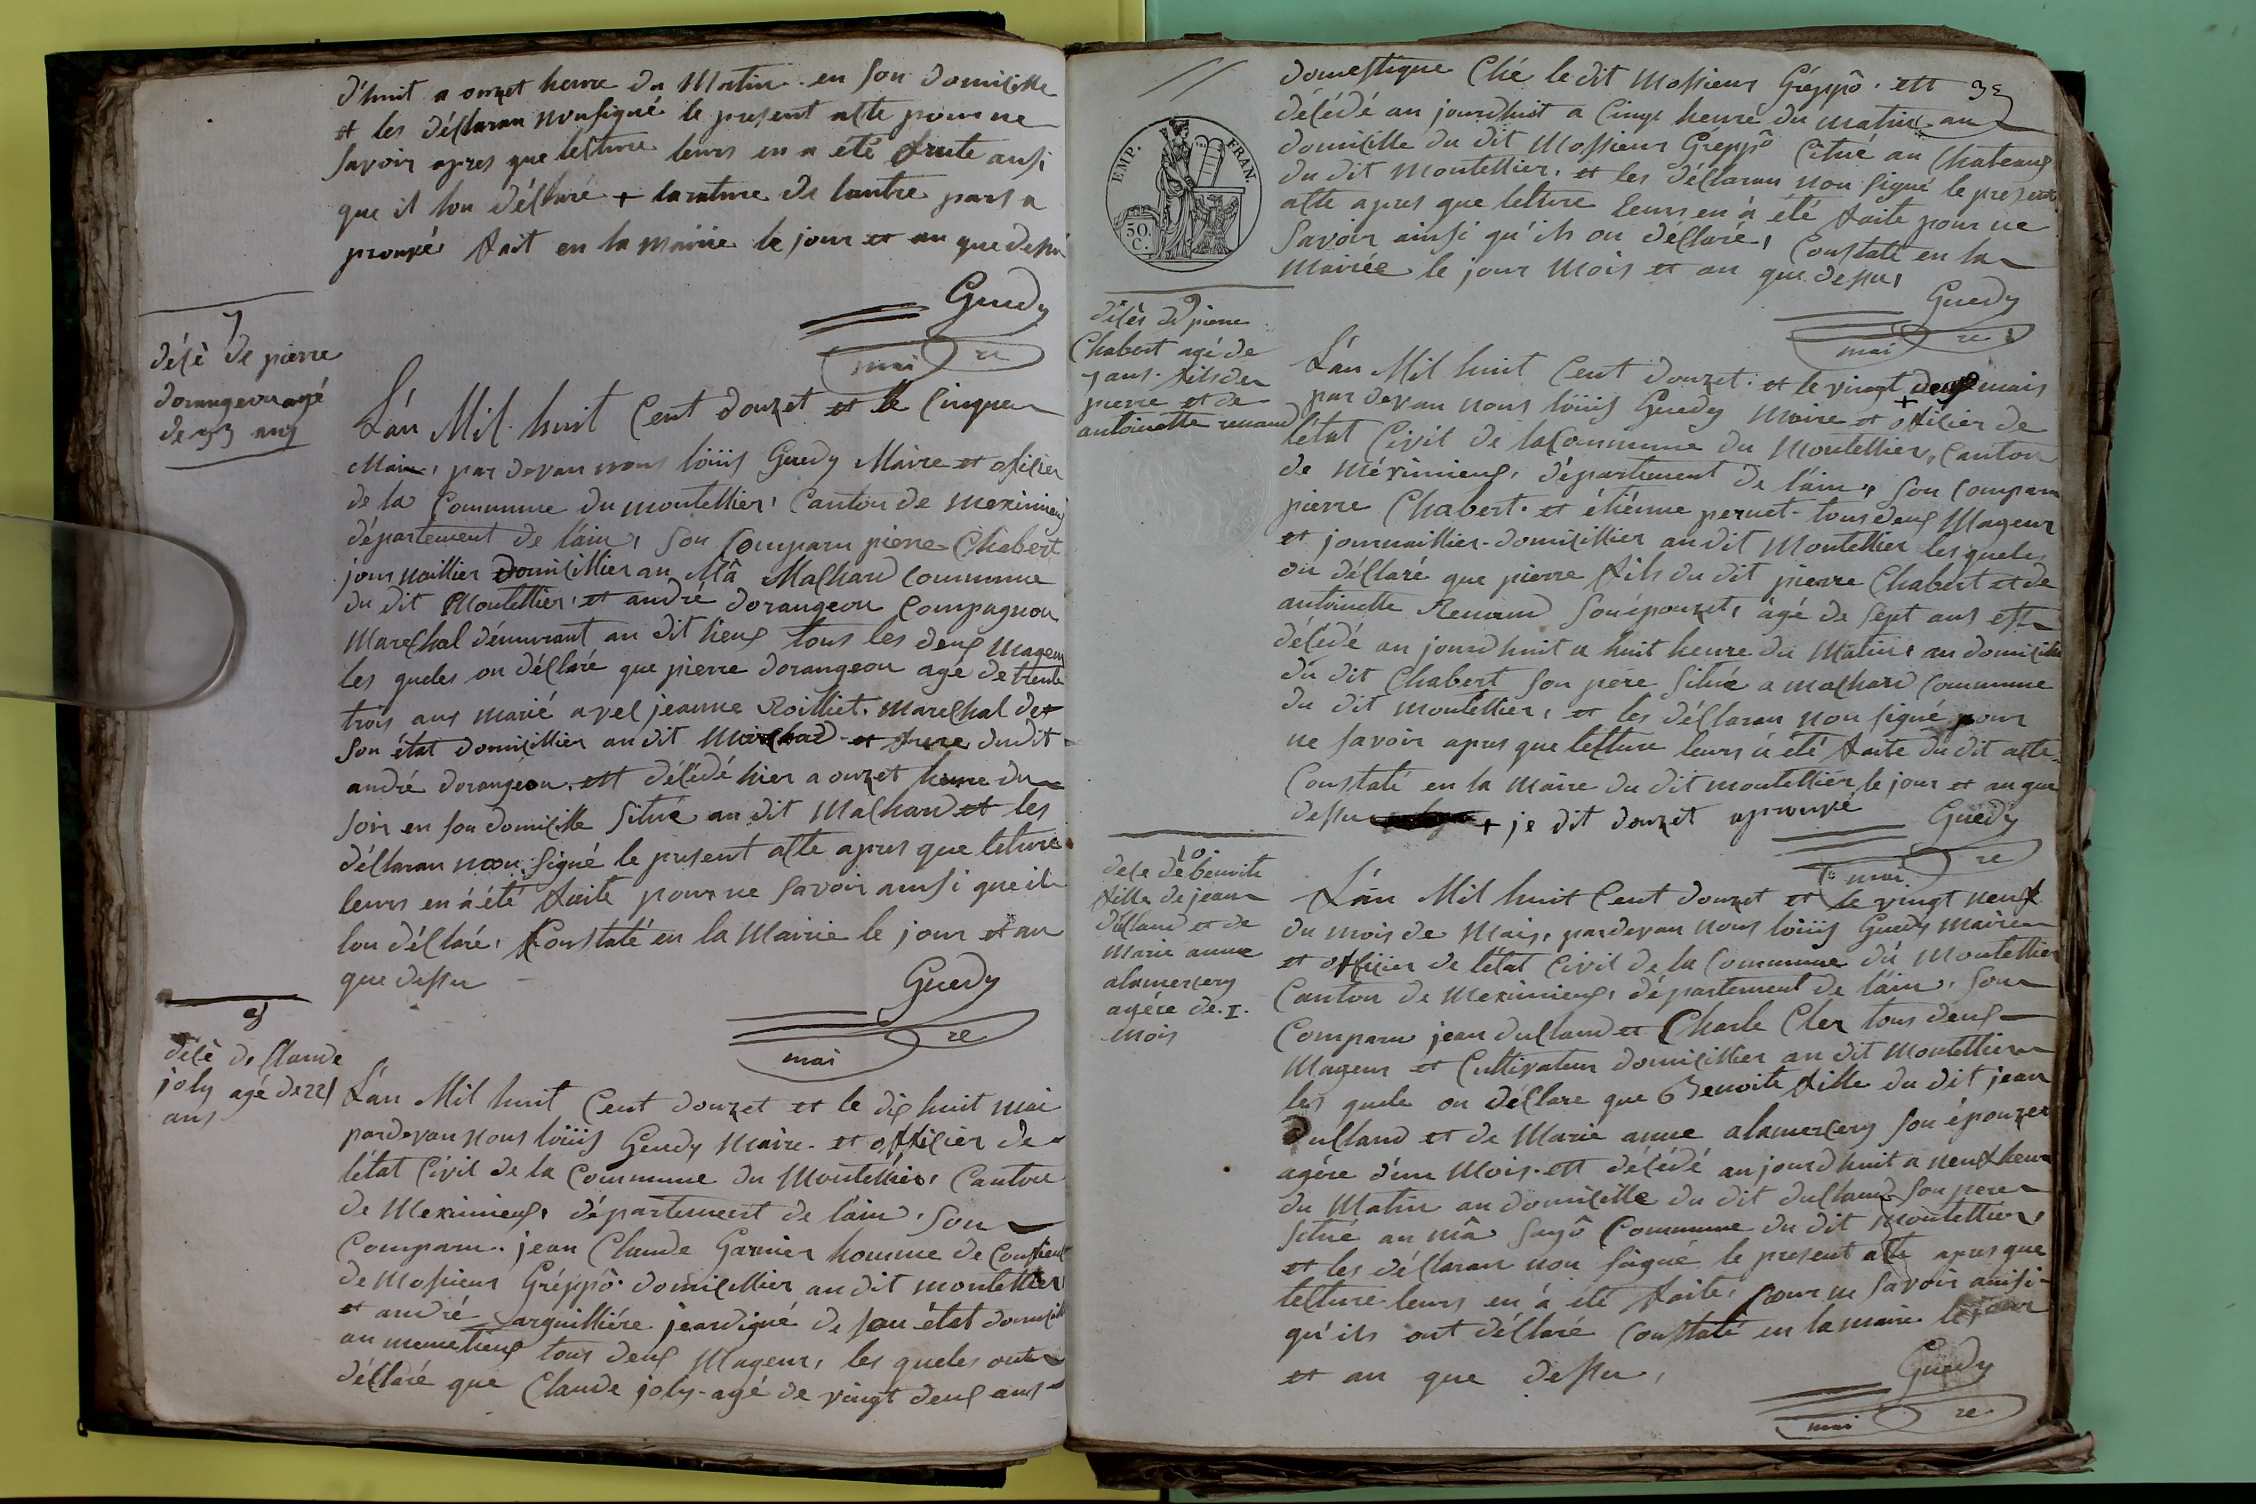 d'huit a onzet heure du Matin en son domicille
et les déclaran nonsigné le present acte pour ne
savoir apres que lecture leurs en a été faite ainsi
que il lon déclaré + larature de lautre part a
prouvé fait en la mairie le jour et an que desu
Guedy
mai re
7
décè de pierre
dorangeon agé
de 33 ans
L'an Mil huit Cent douzet et le Cinque
Mai, par devan nous loüis Guedy Maire et oficier
de la Commune du montellier, Canton de meximieu
département de l'ain, son Comparu pierre Chabert
journaillier domicillier au Mâ Malhard commune
du dit Montellier, et andré dorangeon Compagnon
Marechal démurant au dit lieux tous les deux Mageur
les queles on déclaré que pierre dorangeon agé de trente
trois ans marié avec jeanne Roilliet. Marechal de
son état domicillier au dit et frere dudit
andré dorangeon. est décédé hier a onzet heure du
soir en son domicille situé au dit Malhard et les
déclaran non signé le present acte apres que leture
leurs en à été faite pour ne savoir ainsi que il
lon déclaré, Constaté en la Mairie le jour et an
que dessu
Guedy
mai re
8
décè de Claude
joly agé de 22
ans
L'an Mil huit Cent douzet et le dix huit mai
pardevan nous loüis Guedy Maire et officier de
létat Civil de la Commune du Montellier, Canton
de Meximieux, département de l'ain, son
Comparu. jean Claude Garnier homme de Confience
de Mosieur Gréppô domicillier au dit montellier
et andré arguilliére jeardigné de son état domicillé
au memelieux tous deux Mageur, les queles ont
déclaré que Claude joly agé de vingt deux ans
domestique Ché le dit Mosieur Gréppô. est
35
décédé au jourdhuit a Cinqt heuré du matin au
domicille du dit Mosieur Gréppô Citué au Chateaux
du dit Montellier, et les déclaran non signé le present
acte apres que leture leurs en à été faite pour ne
savoir ainsi qu'ils on déclaré, Constaté en la
Mairiée le jour Mois et an que dessu,
Guedy
mai re
EMP. FRAN.
50. C.
9
décès de pierre
Chabert agé de
7 ans. fils de
pierre et de
antoinette renand
L'an Mil huit Cent douzet. et le vingt deux mais
par devan nous loüis Guedy Maire et oficier de
létat Civil de la Commune du Montellier, Canton
de Méximieux, département de l'ain, son Comparu
pierre Chabert. et étiénne pernet tous deux Mageur
et journaillier domicillier au dit Montellier les queles
on déclaré que pierre fils du dit pierre Chabert et de
antoinette Renand son épouzet, àgé de sept ans est
décédé au jourdhuit a huit heure du Matin, au domicille
du dit Chabert son pére Situé a malhard Commune
du dit montellier, et les déclaran non signé pour
ne savoir apres que lecture leurs à été faite du dit acte
Constaté en la Maire du dit montelliér le jour et an que
dessu + je dit douzet aprouvé
Guedy
mai re
10
décè de benoite
fille de jean
dulland et de
Marie anne
alamercery
agéee de .1.
Mois
L'an Mil huit Cent douzet et le vingt neuf
du mois de Mais, pardevan nous loüis Guedy maire
et officier de létat Civil de la Commune du Montellier
Canton de Meximieux, département de l'ain, son
Comparu jean dulland et Charle Cler tous deux
Mageur et Cultivateur domicillier au dit Montellier
les quele on déclare que Benoite fille du dit jean
Dulland et de Marie anne alamercery son épouzee
agéee d'un Mois. est décédé au jourdhuit a neuf heure
du Matin au domicille du dit dulland son pere
situé au mâ Sagô Commune du dit Montellier,
et les déclaran non signé le present acte apres que
lecture leurs en à été faite, pour ne savoir ainsi
qu'ils ont déclaré Constaté en la maire le jour
et an que dessu,
Guedy
mai re